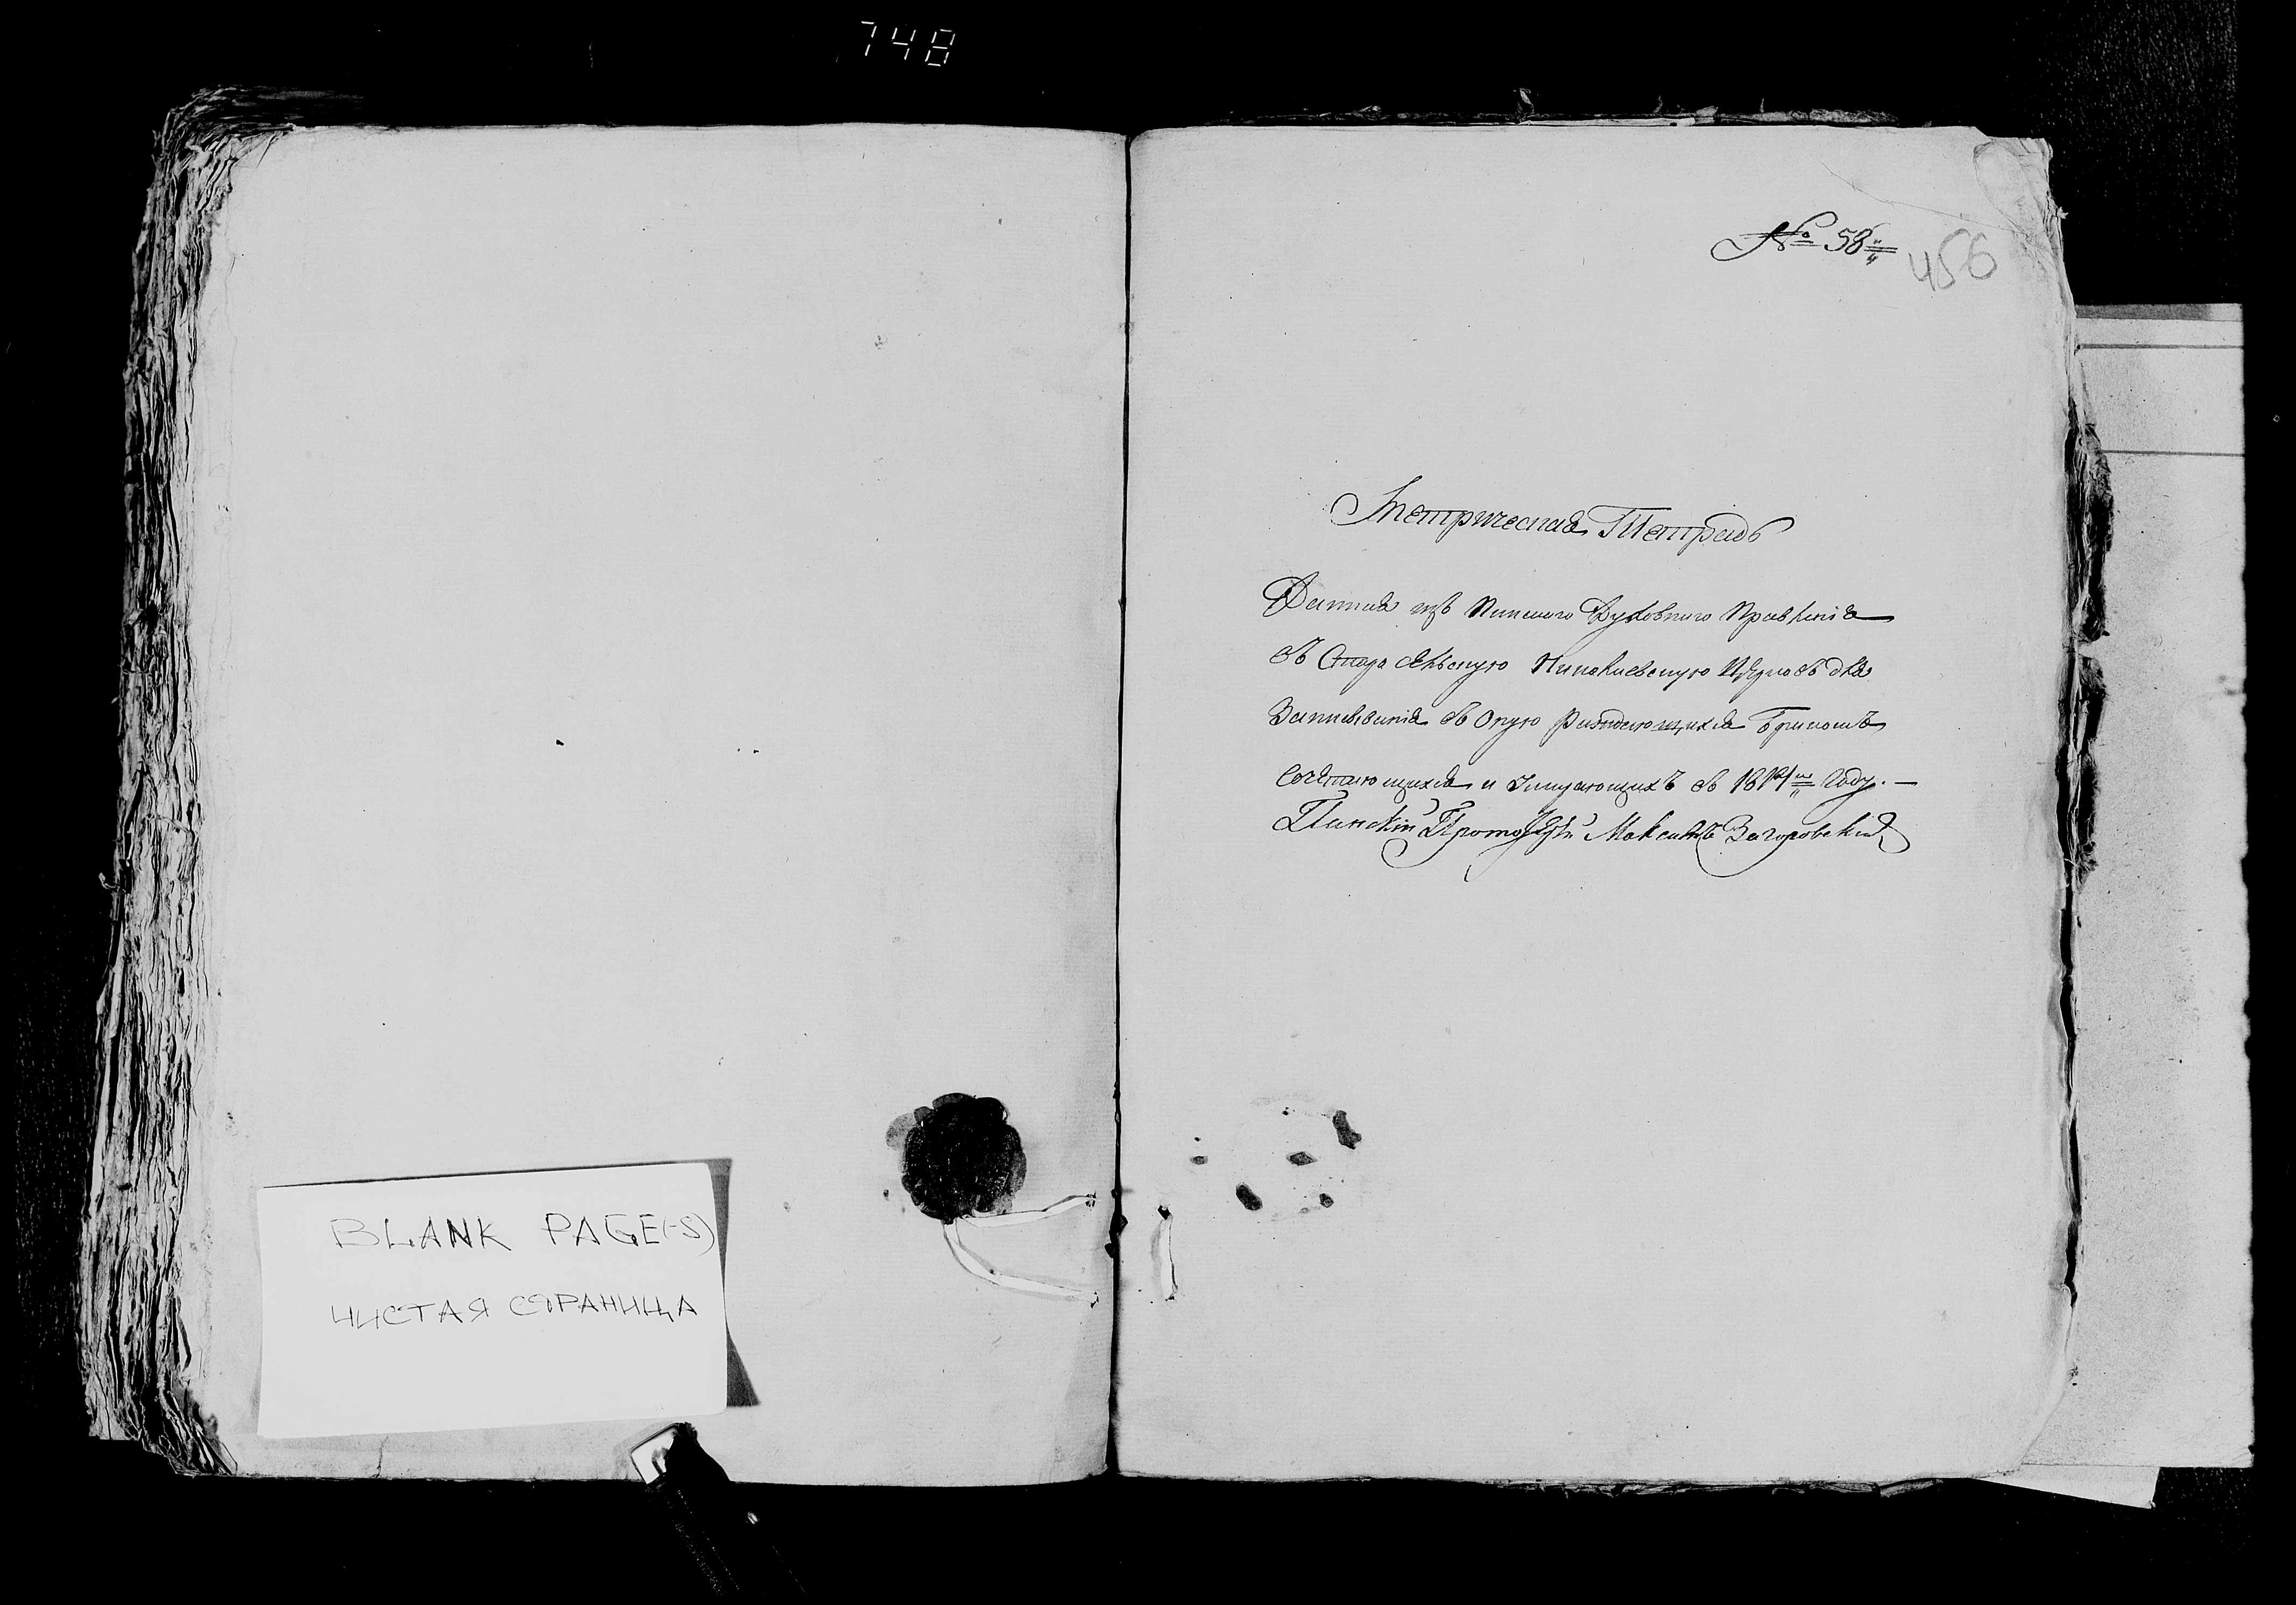 748
BLANK PAGE(-S)
ЧИСТАЯ СТРАНИЦА
№ 58
456
Метрическая Тетрадь
Данная изъ Пинского Духовного Правленія
въ Старо Николаевскую Церковь для
Записыванія въ оную раждающихся бракомъ
Сочетающихся и Умирающихъ въ году. —
Пинскій Максимъ Загоровский